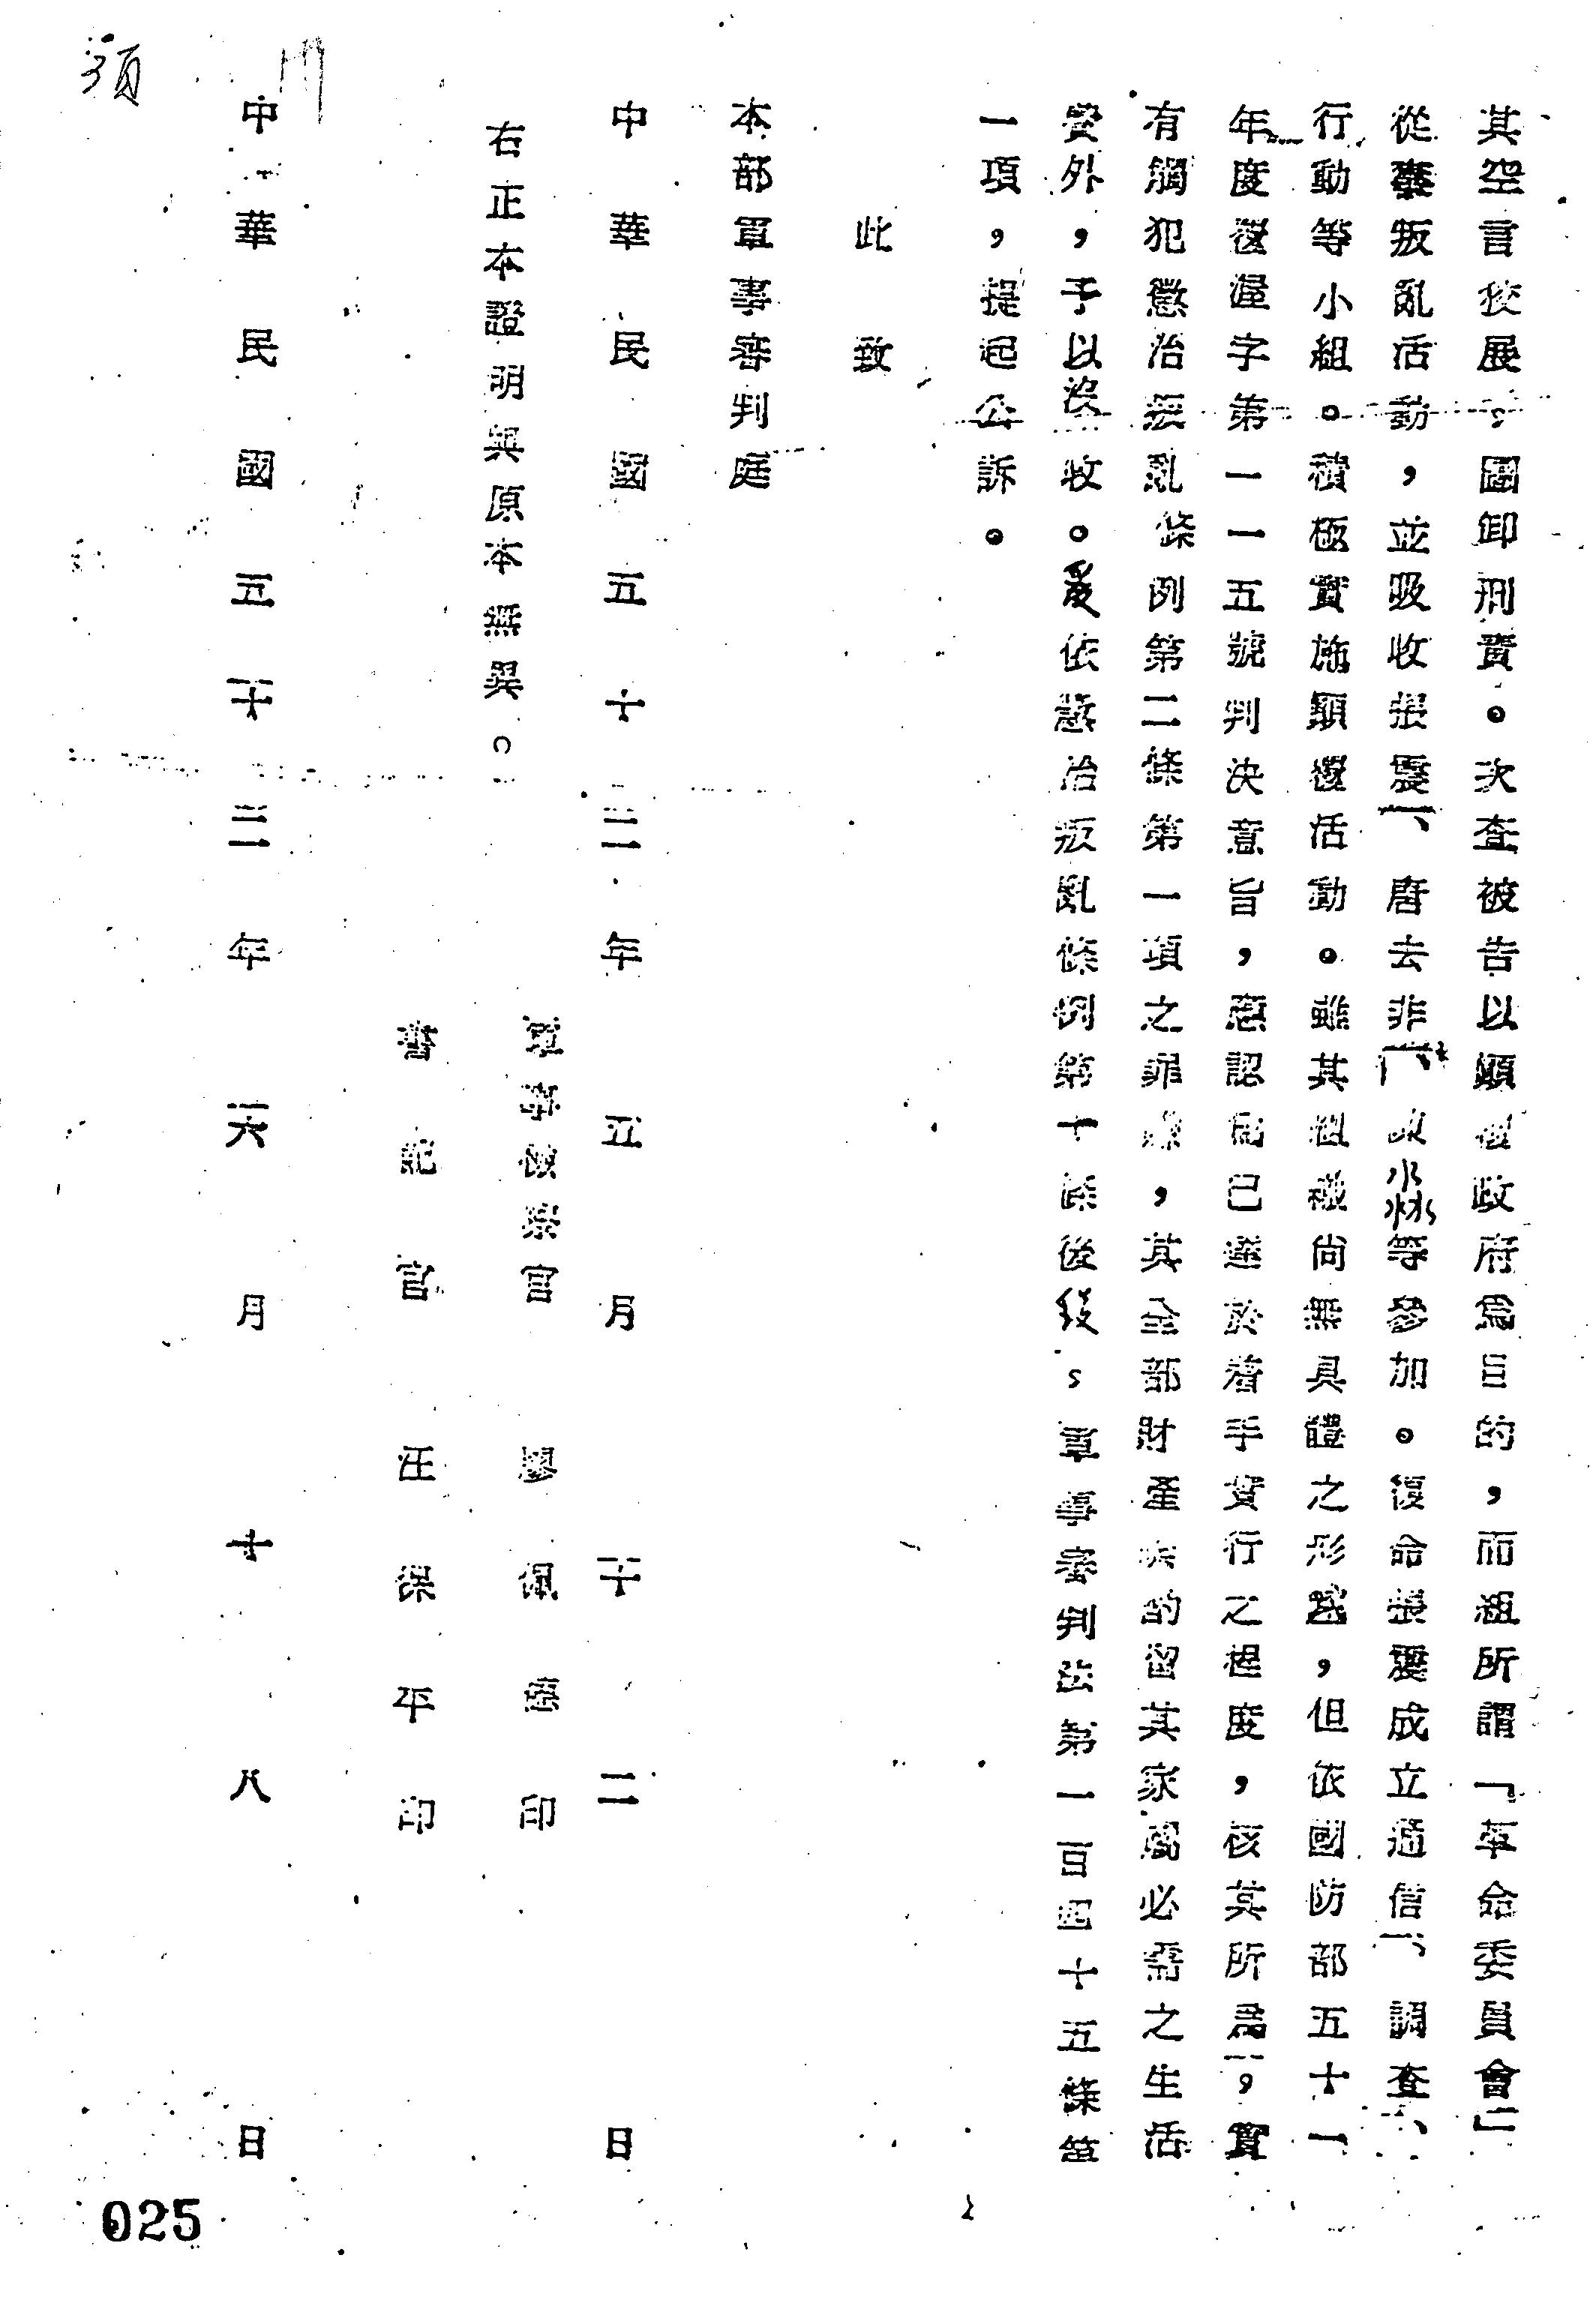 其空言狡展，圖卸刑責。次查被告以顛覆政府為目的，而組所謂「革命委員會」
從事叛亂活動，並吸收張震、唐去非、 等參加。復命張震成立通信、調查、
行動等小組。積極實施顛覆活動。雖其組織尚無具體之形式，但依國防部五十一
年度覆 字第一一五號判決意旨，應認為已達於着手實行之程度，核其所為，實
有觸犯懲治叛亂條例第二條第一項之罪嫌，其全部財產 的留其家屬必需之生活
費外，予以沒收。爰依懲治叛亂條例第十條後段，軍事審判法第一百四十五條第
一項，提起公訴。
此致
本部軍事審判庭
中華民國五十三年五月二十二日
軍事檢察官 廖 印
右正本證明與原本無異。
書記官 汪 平印
中華民國五十三年六月十八日
025